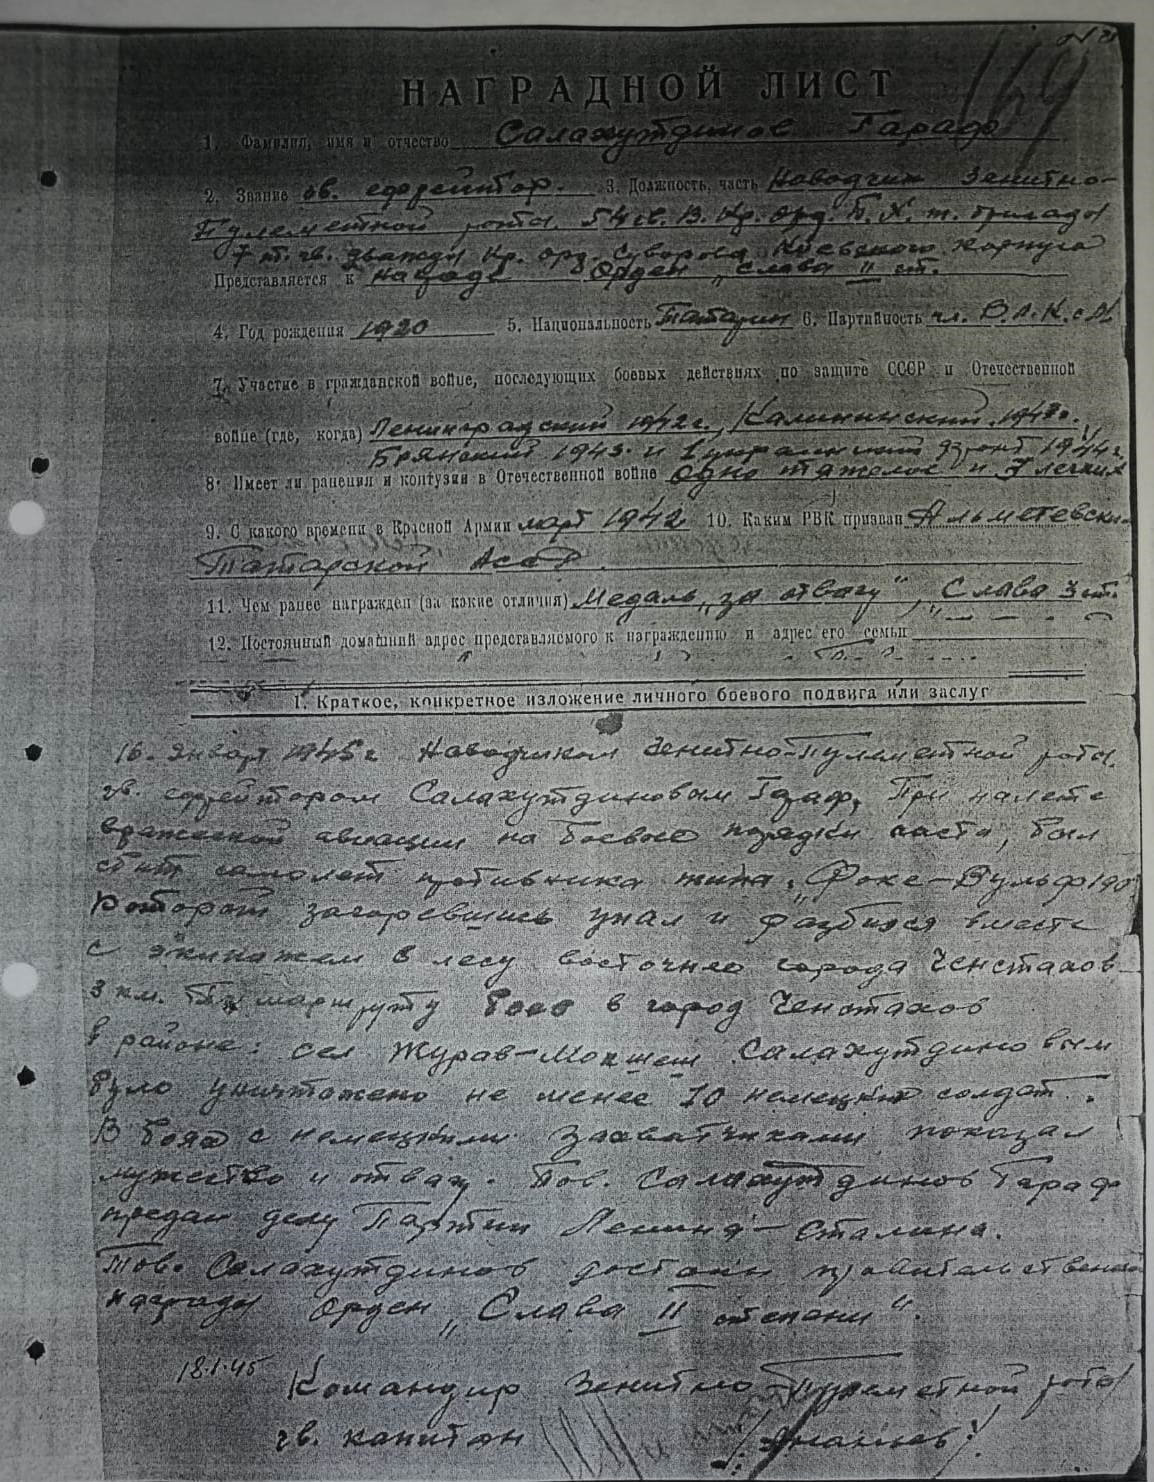 169
НАГРАДНОЙ ЛИСТ
1. Фамилия, имя и отчество Салахутдинов Гараф
2. Звание гв. ефрейтор. 3. Должность, часть Наводчик Зенитно-
Пулеметной роты, 54 гв. В. Кр. орд. Б. Х. т. бригады
7 гв. дважды Кр. орд. Суворова Киевского корпуса
Представляется к награде Орден „Слава" II ст.
4. Год рождения 1920 5. Национальность Татарин 6. Партийность чл. В.Л.К.с.М.
7. Участие в гражданской войне, последующих боевых действиях по защите СССР и Отечественной
войне (где, когда) Ленинградский 1942 г., Калининский 194
Брянский 1943 и 1 украинский фронт 1944 г.
8. Имеет ли ранения и контузии в Отечественной войне одно тяжелое и 3 легких
9. С какого времени в Красной Армии март 1942 10. Каким РВК призван Альметевски
Татарской АССР.
11. Чем ранее награжден (за какие отличия) Медаль „за отвагу", „Слава 3 ст.
12. Постоянный домашний адрес представляемого к награждению и адрес его семьи
1. Краткое, конкретное изложение личного боевого подвига или заслуг
16. Января 1945 г Наводчиком Зенитно-Пулеметной роты,
гв. ефрейтором Салахутдиновым Гараф, При налете
вражеской авиации на боевые порядки части, был
сбит самолет противника типа „Фоке-Вульф 190"
Который загоревшись упал и разбился вместе
с экипажем в лесу восточнее города Ченстахов
3 км. По маршруту боев в город Ченстахов
в районе: сел Журав-Мокшеш Салахутдиновым
было уничтожено не менее 10 немецких солдат.
В боях с немецкими захватчиками показал
мужество и отвагу. Тов. Салахутдинов Гараф
предан делу Партии Ленина-Сталина.
Тов. Салахутдинов достоин правительственной
награды Орден „Слава II степени".
18.1.45
Командир Зенитно-Пулеметной роты
гв. капитан /Ананьев/